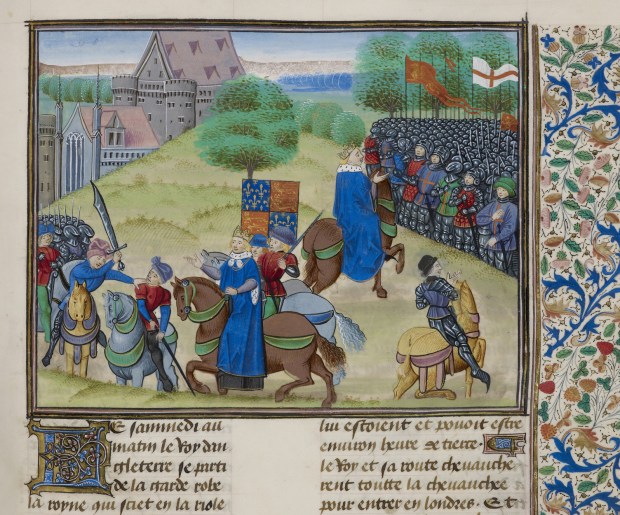 Le sammedi au
matin le Roy dan
gleterre se parti
de la garde robe
la royne qui sciet en la riole
lui estoient et povoit estre
environ heure de tierce
le Roy et sa route chevauche
rent toutte la chevauchee
pour entrer en londres. Et